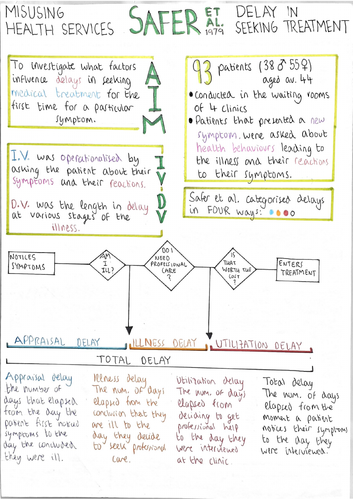 MISUSING
HEALTH SERVICES
SAFER ET AL. 1979
DELAY IN
SEEKING TREATMENT
To investigate what factors
influence delays in seeking
medical treatment for the
first time for a particular
symptom.
AIM
I.V. was operationalised by
asking the patient about their
symptoms and their reactions.
D.V. was the length in delay
at various stages of the
illness.
IV+DV
93 patients (38♂ 55♀)
aged av. 44
• Conducted in the waiting rooms
of 4 clinics
• Patients that presented a new
symptom were asked about
health behaviours leading to
the illness and their reactions
to their symptoms.
Safer et al. categorised delays
in FOUR ways:
NOTICES
SYMPTOMS
AM
I
ILL?
DO I
NEED
PROFESSIONAL
CARE?
IS
THAT
WORTH THE
COST?
ENTERS
TREATMENT
APPRAISAL DELAY
ILLNESS DELAY
UTILIZATION DELAY
TOTAL DELAY
Appraisal delay
the number of
days that elapsed
from the day the
patient first noticed
symptoms to the
day the concluded
they were ill.
Illness delay
The num. of days
elapsed from the
conclusion that they
are ill to the
day they decide
to seek profesional
care.
Utilization delay
The num. of days
elapsed from
deciding to get
profesional help
to the day they
were interviewed
at the clinic
Total delay
The num. of days
elapsed from the
moment a patient
notices their symptoms
to the day they
were interviewed.